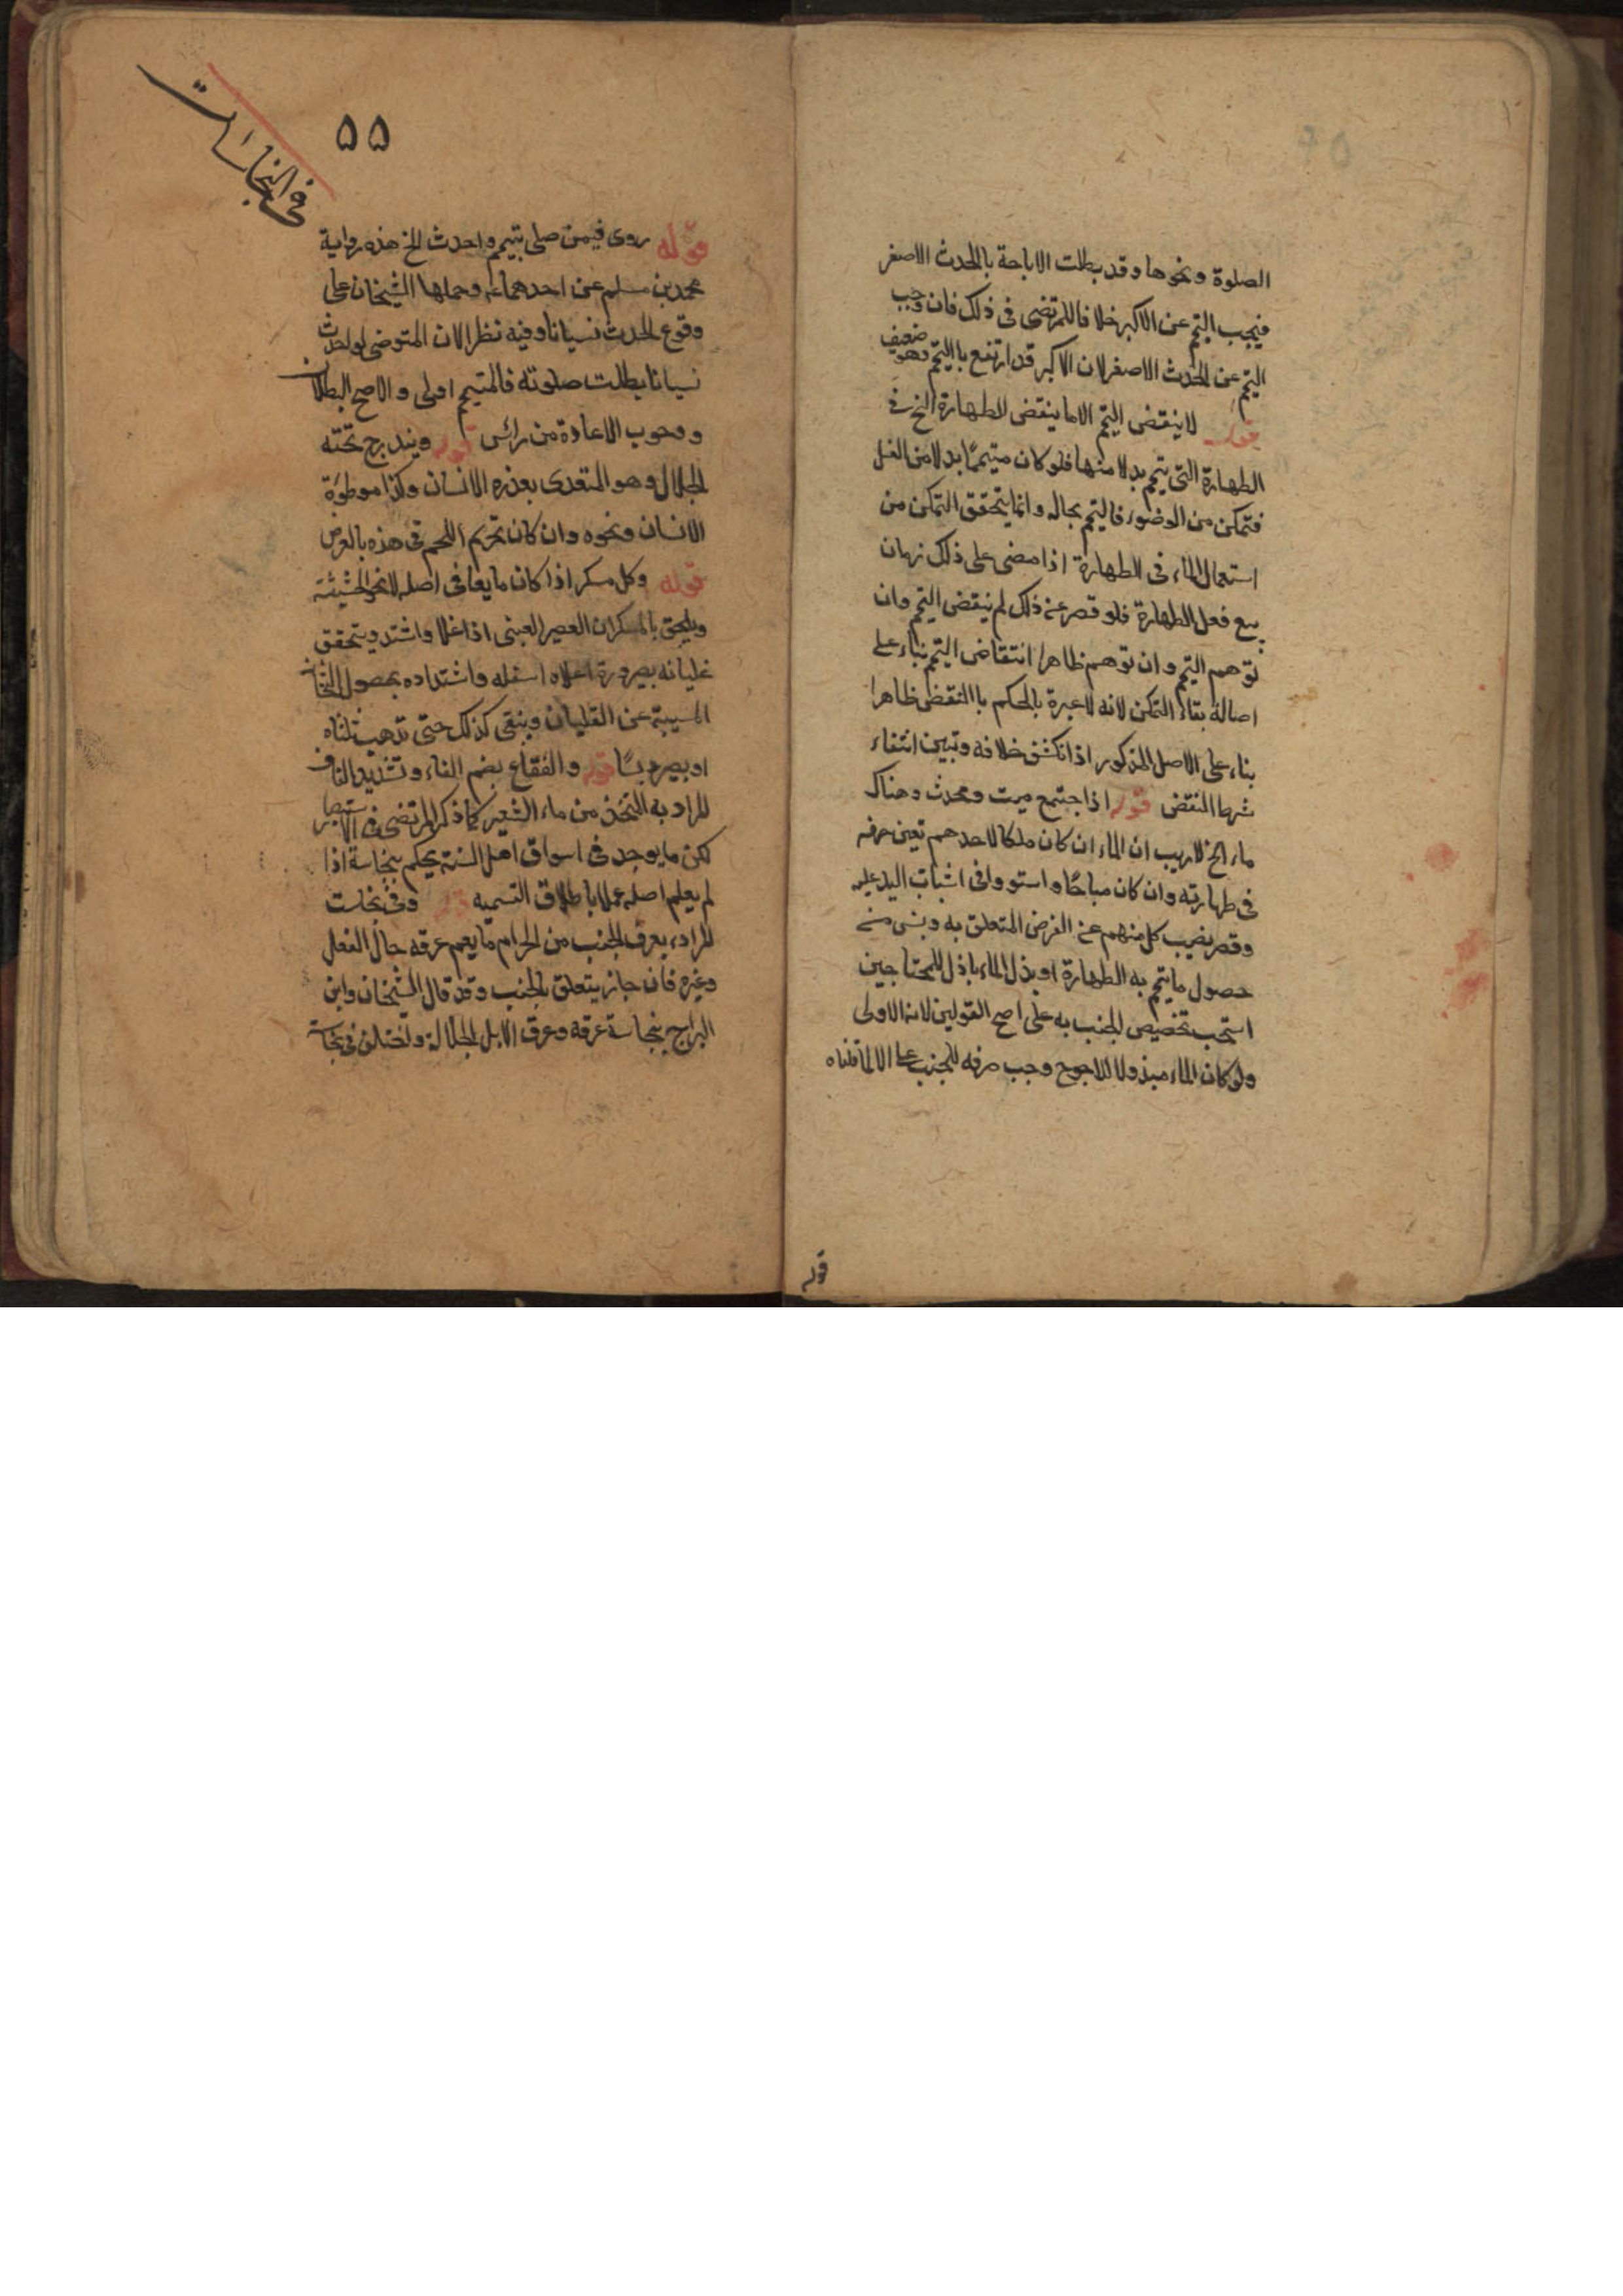 الصلوة ونحوها وقد بطلت الاباحة بالحدث الاصغر
فيجب التيمم عن الاكبر خلافا للمرتضى فى ذلك فان وجب
التيمم عن الحدث الاصغر لان الاكبر قد ارتفع باليتم وهو ضعيف
قوله لا ينقض التيمم الا ما ينقض الطهارة الخ فى
الطهارة التى يتمم بدلا منها فلو كان متيممًا بدلا من الغسل
فتمكن من الوضوء فاليتم بحاله وانما يتحقق التمكن من
استعمال الماء فى الطهارة اذا مضى على ذلك زمان
يسع فعل الطهارة فلو قصر عن ذلك لم ينقض التيمم وان
توهم التيمم وان توهم ظاهرا انتقاض التيمم بناء على
اصالة بقاء التمكن لانه لا عبرة بالحكم باالنقض ظاهرا
بناء على الاصل المذكور اذا انكشف خلافه وتبين انتفاء
شرط النقض قوله اذا اجتمع ميت ومحدث وهناك
ماء الخ لا ريب ان الماء ان كان ملكا لاحدهم تعين صرفه
فى طهارته وان كان مباحًا واستووا فى اثبات اليد عليه
وقصر نصيب كل منهم عن الغرض المتعلق به
حصول ما يتم به الطهارة او بذل الماء باذل للمحتاجين
استحب تخصيص الجنب به على اصح القولين لانه الاولى
ولو كان الماء مبذولا للاحوج وجب صرفه للجنب
قوله
۵۵
فى النجاسات
قوله روى فيمن صلى بتيمم واحدث الخ هذه رواية
محمد بن مسلم عن احدهما ع وحملها الشيخان على
وقوع الحدث نسيانا وفيه نظر لان المتوضى لو احدث
نسيانا بطلت صلوته فالمتيمم اولى والاصح البطلان
ووجوب الاعادة من رأس قوله ويندرج تحته
الجلال وهو المتغدى بعذره الانسان وكذا موطوءة
الانسان ونحوه وان كان تحريم اللحم فى هذه بالعرض
قوله وكل مسكر اذا كان مايعا فى اصله لا نحو الحشيشة
ويلحق بالمسكران العصير العنبى اذا غلا واشتد ويتحقق
غليانه بصيرورة اعلاه اسفله واشتداده بحصول الثخانة
المسببة عن الغليان ويبقى كذلك حتى تذهب ثلثاه
او يصير دبسًا قوله والفقاع بضم الفاء وتشديد القاف
المراد به المتخذ من ماء الشعير كما ذكر المرتضى فى الانتصار
لكن ما يوجد فى اسواق اهل السنة يحكم بنجاسة اذا
لم يعلم اصله عملا باطلاق التسميه قوله وفى نجاست
المراد بعرق الجنب من الحرام ما يعم عرقه حال الفعل
وغيره فان جاز يتعلق بالجنب وقد قال الشيخان وابن
البراج بنجاسة عرقه وعرق الابل الجلالة واختلف فى نجاسة